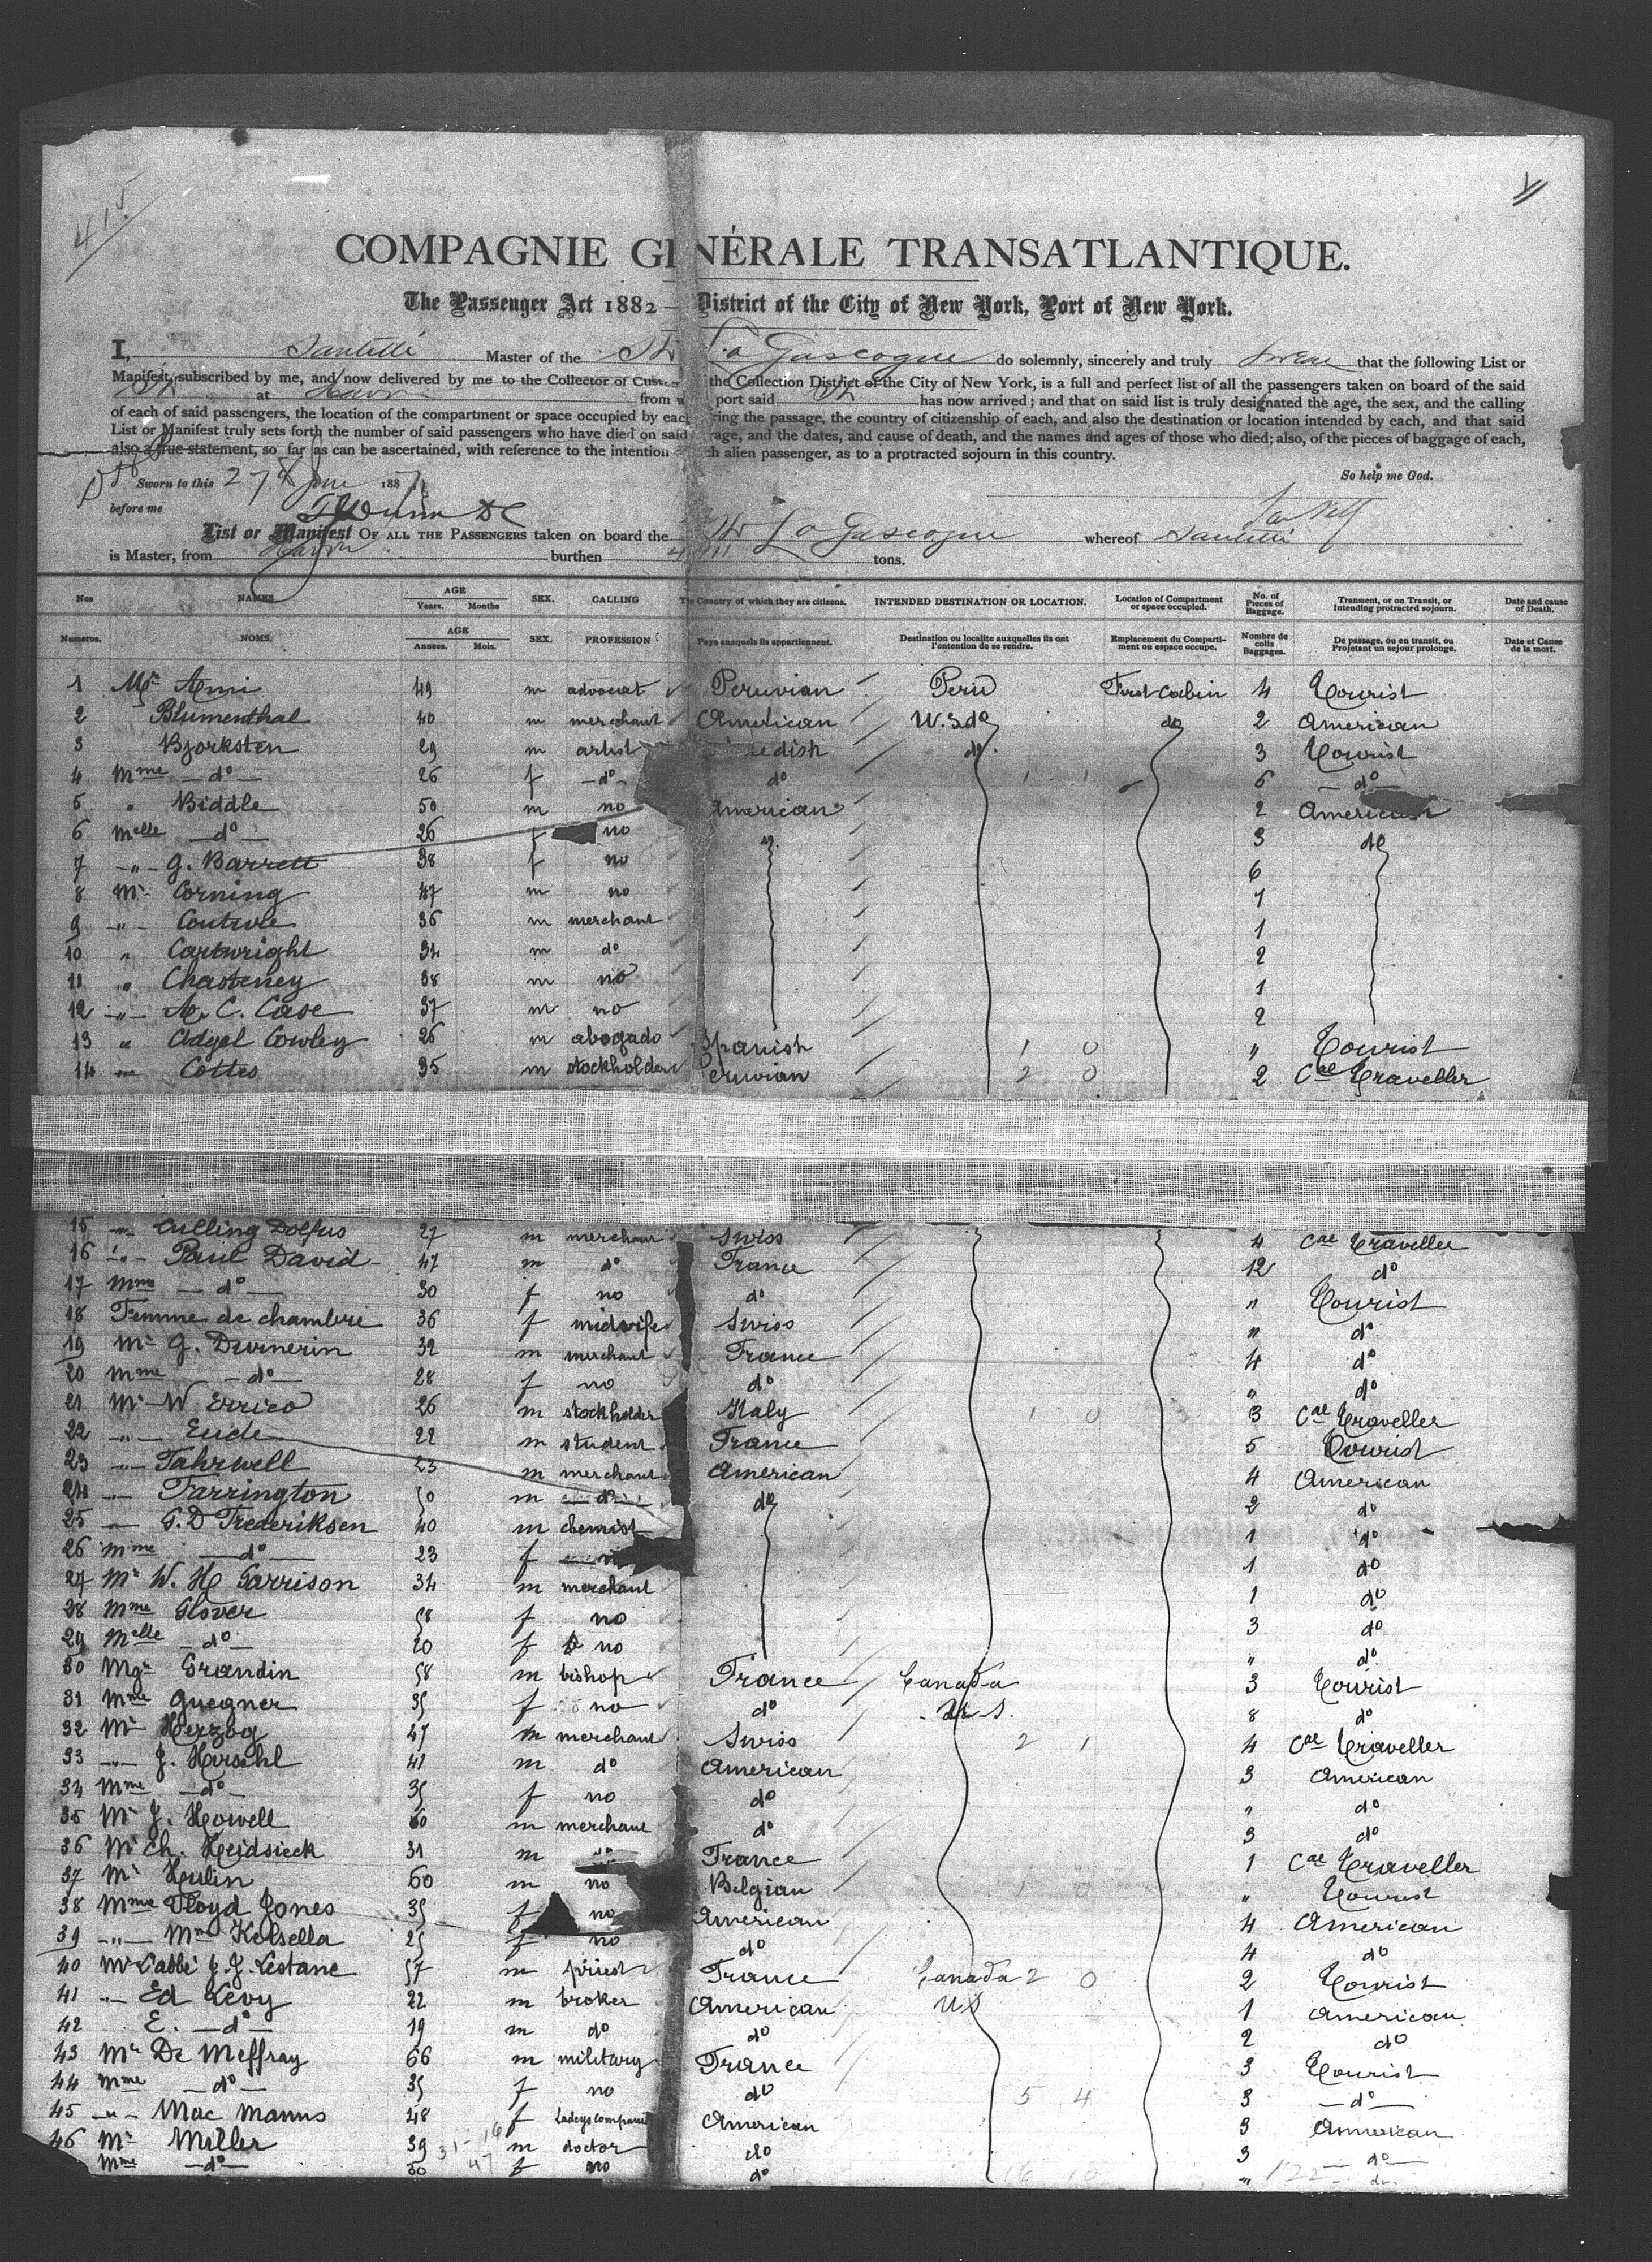 415
COMPAGNIE GÉNÉRALE TRANSATLANTIQUE.
The Passenger Act 1882 — District of the City of New York, Port of New York.
I, Santelli Master of the Str La Gascogne do solemnly, sincerely and truly swear that the following List or
Manifest, subscribed by me, and now delivered by me to the Collector of Custo the Collection District of the City of New York, is a full and perfect list of all the passengers taken on board of the said
Str at Havre from w port said Str has now arrived; and that on said list is truly designated the age, the sex, and the calling
of each of said passengers, the location of the compartment or space occupied by each ring the passage, the country of citizenship of each, and also the destination or location intended by each, and that said
List or Manifest truly sets forth the number of said passengers who have died on said rage, and the dates, and cause of death, and the names and ages of those who died; also, of the pieces of baggage of each,
also a true statement, so far as can be ascertained, with reference to the intention ch alien passenger, as to a protracted sojourn in this country.
Sworn to this 27th June 1887 So help me God.
before me
List or Manifest OF ALL THE PASSENGERS taken on board the Str La Gascogne whereof Santelli
is Master, from Havre burthen tons.
Nos NAMES AGE Years. Months SEX. CALLING The Country of which they are citizens. INTENDED DESTINATION OR LOCATION. Location of Compartment or space occupied. No. of Pieces of Baggage. Transient, or on Transit, or Intending protracted sojourn. Date and cause of Death.
Numeros. NOMS. AGE Années. Mois. SEX. PROFESSION Pays auxquels ils appartiennent. Destination ou localite auxquelles ils ont l'entention de se rendre. Emplacement du Compartiment ou espace occupe. Nombre de colis Baggages. De passage, ou en transit, ou Projetant un sejour prolonge. Date et Cause de la mort.
1 Mr 49 m advocat Peruvian Peru First Cabin 4 Tourist
2 Blumenthal 40 m merchant American do 2 American
3 Bjorksten 29 m artist edish do 3 Tourist
4 Mme do 26 f do do 6 do
5 " Biddle 50 m no American 2 American
6 Melle do 26 f no do 3 do
7 " G. Barrett 38 f no 6
8 Mr Corning 47 m no 7
9 " Couture 36 m merchant 1
10 " Cartwright 34 m do 2
11 " Chasteney 38 m no 1
12 " A. C. Case 37 m no 2
13 " Adgel Cowley 26 m abogado Spanish 1 0 " Tourist
14 " Cottes 35 m stockholder eruvian 2 0 2 Cal Traveller
15 " Culling Dolfus 27 m merchant Swiss 4 Cal Traveller
16 " Paul David 47 m do France 12 do
17 Mme do 30 f no do " Tourist
18 Femme de chambre 36 f midwife Swiss " do
19 Mr G. Durnerin 32 m merchant France 4 do
20 Mme do 28 f no do " do
21 Mr W Errico 26 m stockholder Italy 1 0 3 Cal Traveller
22 " Eude 22 m student France 5 Tourist
23 " Fahrwell 23 m merchant American 4 American
24 " Farrington 50 m do do 2 do
25 " G. D Frederiksen 40 m chemist 1 do
26 Mme do 23 f 1 do
27 Mr W. H Garrison 34 m merchant 1 do
28 Mme Glover 58 f no 3 do
29 Melle do 20 f no " do
30 Mgr Grandin 58 m bishop France Canada 3 Tourist
31 Mme Guegner 35 f no do U.S. 8 do
32 Mr Herzog 47 m merchant Swiss 2 1 4 Cal Traveller
33 " J. Harschl 41 m do American 3 American
34 Mme do 35 f no do " do
35 Mr J. Howell 60 m merchant do 3 do
36 Mr Ch. Heidsieck 31 m do France 1 Cal Traveller
37 Mr Hulin 60 m no Belgian 1 0 " Tourist
38 Mme Floyd Jones 35 f no American 4 American
39 " Mme Kelsella 25 f no do 4 do
40 Mr L'abbé J. J. Lestanc 57 m priest France Canada 2 0 2 Tourist
41 " Ed Levy 22 m broker American US 1 American
42 E. do 19 m do do 2 do
43 Mr De Meffray 66 m military France 3 Tourist
44 Mme do 35 f no do 5 4 3 do
45 " Mac Manus 48 f American 3 American
46 Mr Miller 39 m doctor do 3 do
Mme do 30 f no do 16 10 " 122 do